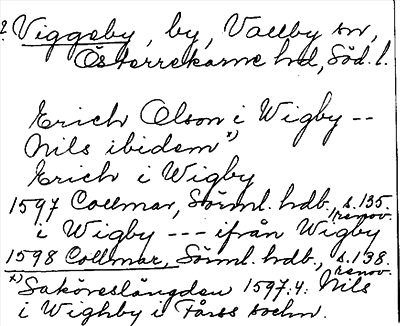 Viggeby, by, Vallby sn,
Österrekarne hd, Söd. l.
Erich Olson i Wigby --
Nils ibidem x)
Erich i Wigby
1597 Collmar, Sörml. hdb., s. 135.
renov.
i Wigby --- ifrån Wigby
1598 Collmar, Sörml. hdb., s. 138.
renov.
x) Saköreslängden 1597:4: Nils
i Wighby i Fårss sochn.